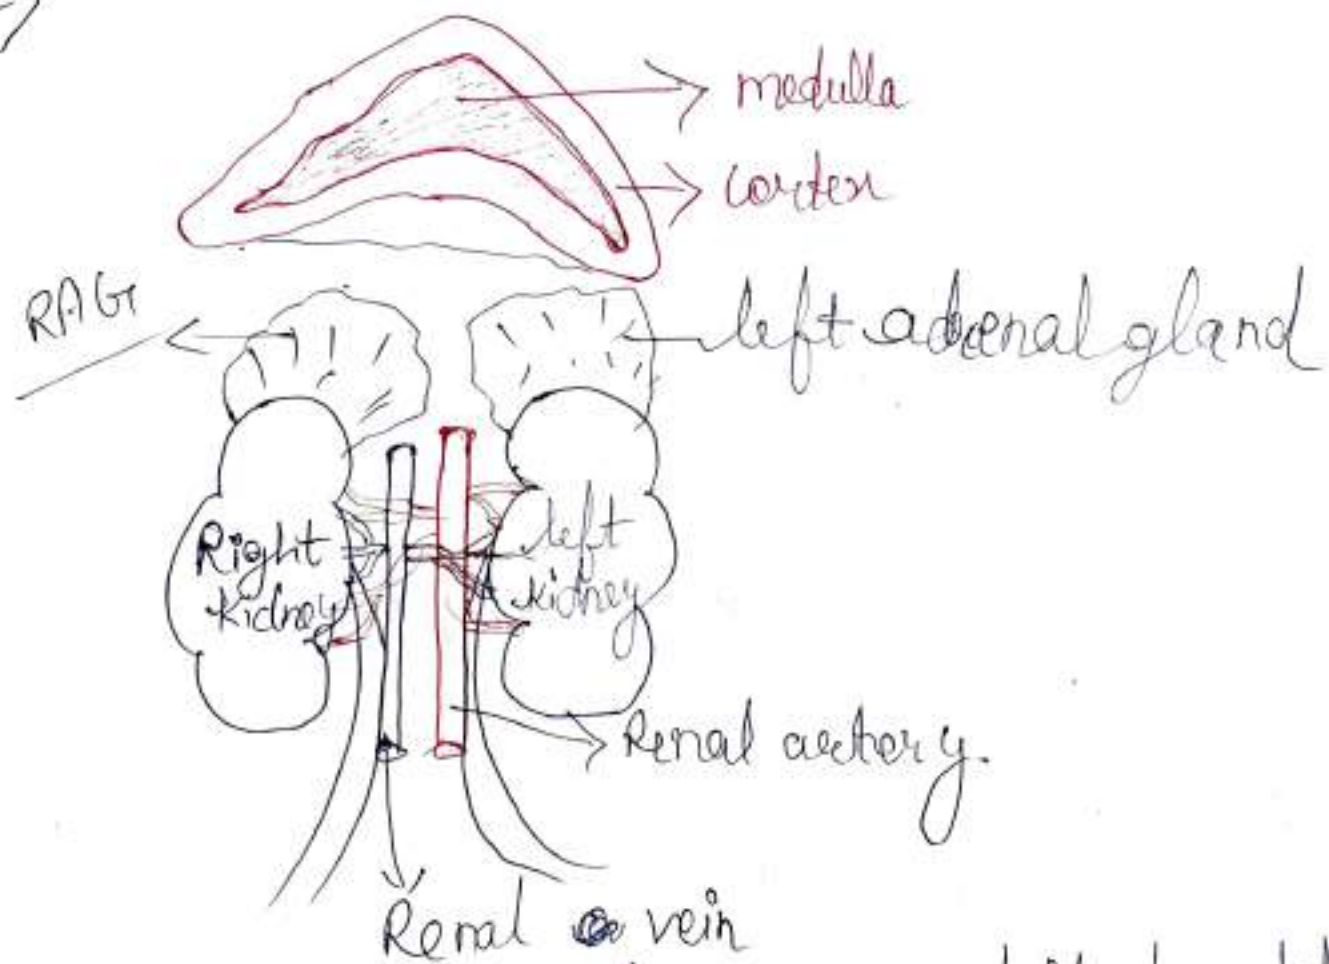 medulla
cortex
RAG
left adrenal gland
Right
kidney
left
kidney
Renal artery.
Renal vein